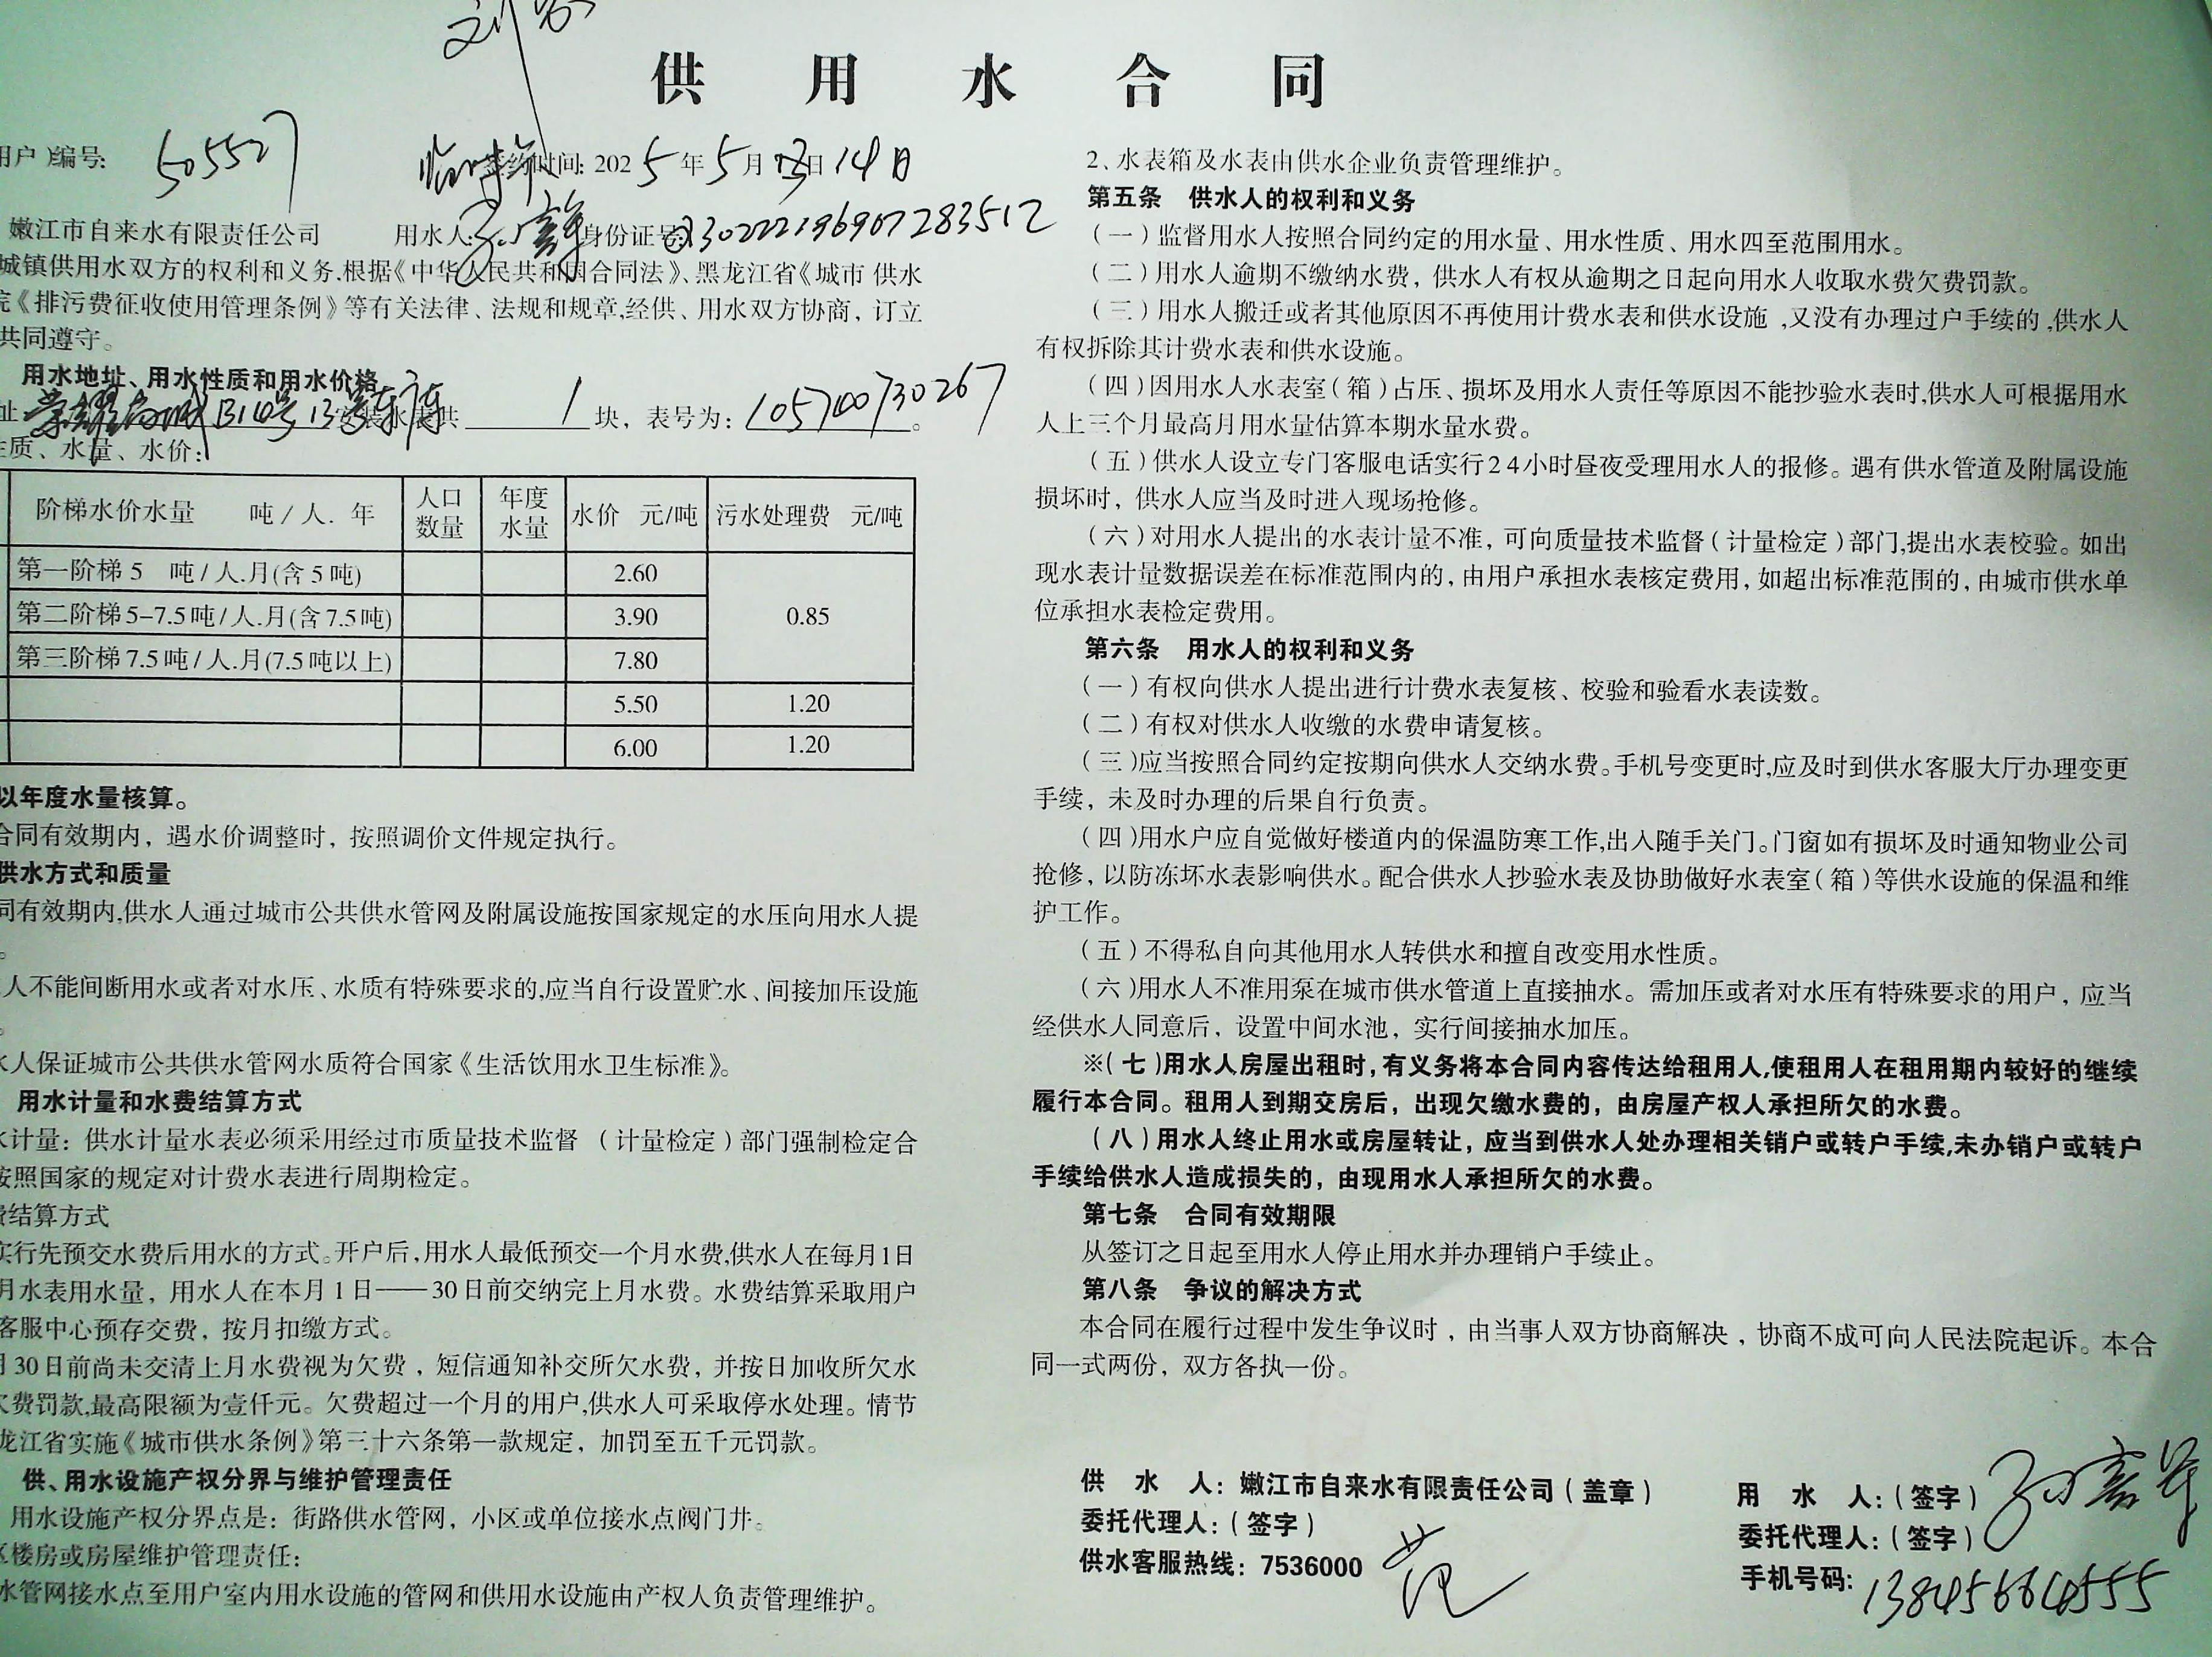 供 用 水 合 同
用户）编号： 505527
签约时间：2025年5月13日14日
嫩江市自来水有限责任公司 用水人： 身份证号： 230222196907283512
城镇供用水双方的权利和义务.根据《中华人民共和国合同法》、黑龙江省《城市 供水
院《排污费征收使用管理条例》等有关法律、法规和规章,经供、用水双方协商，订立
共同遵守。
用水地址、用水性质和用水价格
址 荣耀尚城B14号13号车库 安装水表共 1 块，表号为：105700730267。
性质、水量、水价：
阶梯水价水量 吨/人.年 人口数量 年度水量 水价 元/吨 污水处理费 元/吨
第一阶梯 5 吨/人.月(含5吨) 2.60 0.85
第二阶梯5–7.5吨/人.月(含7.5吨) 3.90
第三阶梯7.5吨/人.月(7.5吨以上) 7.80
5.50 1.20
6.00 1.20
以年度水量核算。
合同有效期内，遇水价调整时，按照调价文件规定执行。
供水方式和质量
同有效期内,供水人通过城市公共供水管网及附属设施按国家规定的水压向用水人提
。
人不能间断用水或者对水压、水质有特殊要求的,应当自行设置贮水、间接加压设施
。
水人保证城市公共供水管网水质符合国家《生活饮用水卫生标准》。
用水计量和水费结算方式
水计量：供水计量水表必须采用经过市质量技术监督（计量检定）部门强制检定合
按照国家的规定对计费水表进行周期检定。
费结算方式
实行先预交水费后用水的方式。开户后,用水人最低预交一个月水费,供水人在每月1日
月水表用水量，用水人在本月1日——30日前交纳完上月水费。水费结算采取用户
客服中心预存交费，按月扣缴方式。
月30日前尚未交清上月水费视为欠费，短信通知补交所欠水费，并按日加收所欠水
欠费罚款,最高限额为壹仟元。欠费超过一个月的用户,供水人可采取停水处理。情节
龙江省实施《城市供水条例》第三十六条第一款规定，加罚至五千元罚款。
供、用水设施产权分界与维护管理责任
用水设施产权分界点是：街路供水管网，小区或单位接水点阀门井。
区楼房或房屋维护管理责任：
水管网接水点至用户室内用水设施的管网和供用水设施由产权人负责管理维护。
2、水表箱及水表由供水企业负责管理维护。
第五条 供水人的权利和义务
（一）监督用水人按照合同约定的用水量、用水性质、用水四至范围用水。
（二）用水人逾期不缴纳水费，供水人有权从逾期之日起向用水人收取水费欠费罚款。
（三）用水人搬迁或者其他原因不再使用计费水表和供水设施,又没有办理过户手续的,供水人
有权拆除其计费水表和供水设施。
（四）因用水人水表室（箱）占压、损坏及用水人责任等原因不能抄验水表时,供水人可根据用水
人上三个月最高月用水量估算本期水量水费。
（五）供水人设立专门客服电话实行24小时昼夜受理用水人的报修。遇有供水管道及附属设施
损坏时，供水人应当及时进入现场抢修。
（六）对用水人提出的水表计量不准，可向质量技术监督（计量检定）部门,提出水表校验。如出
现水表计量数据误差在标准范围内的，由用户承担水表核定费用，如超出标准范围的，由城市供水单
位承担水表检定费用。
第六条 用水人的权利和义务
（一）有权向供水人提出进行计费水表复核、校验和验看水表读数。
（二）有权对供水人收缴的水费申请复核。
（三）应当按照合同约定按期向供水人交纳水费。手机号变更时,应及时到供水客服大厅办理变更
手续，未及时办理的后果自行负责。
（四）用水户应自觉做好楼道内的保温防寒工作,出入随手关门。门窗如有损坏及时通知物业公司
抢修，以防冻坏水表影响供水。配合供水人抄验水表及协助做好水表室（箱）等供水设施的保温和维
护工作。
（五）不得私自向其他用水人转供水和擅自改变用水性质。
（六）用水人不准用泵在城市供水管道上直接抽水。需加压或者对水压有特殊要求的用户，应当
经供水人同意后，设置中间水池，实行间接抽水加压。
※（七）用水人房屋出租时，有义务将本合同内容传达给租用人,使租用人在租用期内较好的继续
履行本合同。租用人到期交房后，出现欠缴水费的，由房屋产权人承担所欠的水费。
（八）用水人终止用水或房屋转让，应当到供水人处办理相关销户或转户手续,未办销户或转户
手续给供水人造成损失的，由现用水人承担所欠的水费。
第七条 合同有效期限
从签订之日起至用水人停止用水并办理销户手续止。
第八条 争议的解决方式
本合同在履行过程中发生争议时，由当事人双方协商解决，协商不成可向人民法院起诉。本合
同一式两份，双方各执一份。
供 水 人：嫩江市自来水有限责任公司（盖章）
委托代理人：（签字） 范
供水客服热线：7536000
用 水 人：（签字）
委托代理人：（签字）
手机号码：13845664555